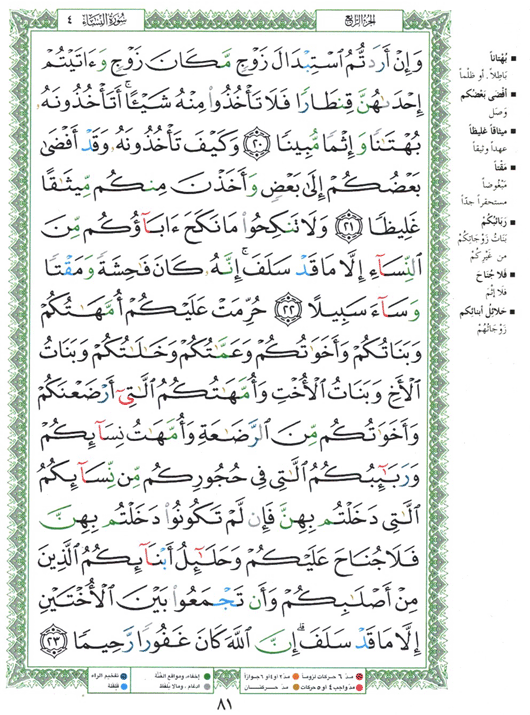 سُورَةُ النِّسَاءِ ٤
الجزء الرابع
وَإِنْ أَرَدتُّمُ ٱسْتِبْدَالَ زَوْجٍ مَّكَانَ زَوْجٍ وَءَاتَيْتُمْ
إِحْدَىٰهُنَّ قِنطَارًا فَلَا تَأْخُذُوا۟ مِنْهُ شَيْـًٔا ۚ أَتَأْخُذُونَهُۥ
بُهْتَـٰنًا وَإِثْمًا مُّبِينًا ﴿٢٠﴾ وَكَيْفَ تَأْخُذُونَهُۥ وَقَدْ أَفْضَىٰ
بَعْضُكُمْ إِلَىٰ بَعْضٍ وَأَخَذْنَ مِنكُم مِّيثَـٰقًا
غَلِيظًا ﴿٢١﴾ وَلَا تَنكِحُوا۟ مَا نَكَحَ ءَابَآؤُكُم مِّنَ
ٱلنِّسَآءِ إِلَّا مَا قَدْ سَلَفَ ۚ إِنَّهُۥ كَانَ فَـٰحِشَةً وَمَقْتًا
وَسَآءَ سَبِيلًا ﴿٢٢﴾ حُرِّمَتْ عَلَيْكُمْ أُمَّهَـٰتُكُمْ
وَبَنَاتُكُمْ وَأَخَوَٰتُكُمْ وَعَمَّـٰتُكُمْ وَخَـٰلَـٰتُكُمْ وَبَنَاتُ
ٱلْأَخِ وَبَنَاتُ ٱلْأُخْتِ وَأُمَّهَـٰتُكُمُ ٱلَّـٰتِىٓ أَرْضَعْنَكُمْ
وَأَخَوَٰتُكُم مِّنَ ٱلرَّضَـٰعَةِ وَأُمَّهَـٰتُ نِسَآئِكُمْ
وَرَبَـٰٓئِبُكُمُ ٱلَّـٰتِى فِى حُجُورِكُم مِّن نِّسَآئِكُمُ
ٱلَّـٰتِى دَخَلْتُم بِهِنَّ فَإِن لَّمْ تَكُونُوا۟ دَخَلْتُم بِهِنَّ
فَلَا جُنَاحَ عَلَيْكُمْ وَحَلَـٰٓئِلُ أَبْنَآئِكُمُ ٱلَّذِينَ
مِنْ أَصْلَـٰبِكُمْ وَأَن تَجْمَعُوا۟ بَيْنَ ٱلْأُخْتَيْنِ
إِلَّا مَا قَدْ سَلَفَ ۗ إِنَّ ٱللَّهَ كَانَ غَفُورًا رَّحِيمًا ﴿٢٣﴾
بُهْتَاناً
بَاطِلاً، أو ظلماً
أفْضَى بَعْضُكم
وَصَل
ميثاقاً غليظاً
عهداً وثيقاً
مَقْتاً
مَبْغُوضاً
مستحقراً جدّاً
رَبَائبُكُمُ
بَنَاتُ زَوْجَاتِكُمْ
من غَيْرِكُمْ
فلا جُنَاحَ
فلا إثْمَ
حَلائِلُ أبنَائِكم
زَوْجَاتُهُمْ
مدّ ٦ حركات لزوماً
مدّ ٢ أو ٤ أو ٦ جوازاً
إخفاء، ومواقع الغُنَّة
تفخيم الراء
مدّ واجب ٤ أو ٥ حركات
مدّ حركتان
إدغام، وما لا يُلفظ
قلقلة
٨١